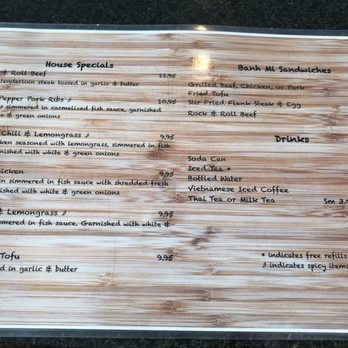 House Specials
& Roll Beef 11.95
steak basted in garlic & butter
Pepper Pork Ribs 10.95
simmered in carmelized fish sauce, garnished
green onions
Chili & Lemongrass 9.95
seasoned with lemongrass, simmered in fish
nished with white & green onions
9.95
simmered in fish sauce with shredded fresh
ished with white & green onions
& Lemongrass 9.95
mmered in fish sauce. Garnished with white &
Tofu 9.95
ed in garlic & butter
Banh Mi Sandwiches
Grilled Beef, Chicken, or Pork
Fried Tofu
Stir Fried Flank Steak & Egg
Rock & Roll Beef
Drinks
Soda Can
Iced Tea *
Bottled Water
Vietnamese Iced Coffee
Thai Tea or Milk Tea Sm 3.
* indicates free refills
indicates spicy items